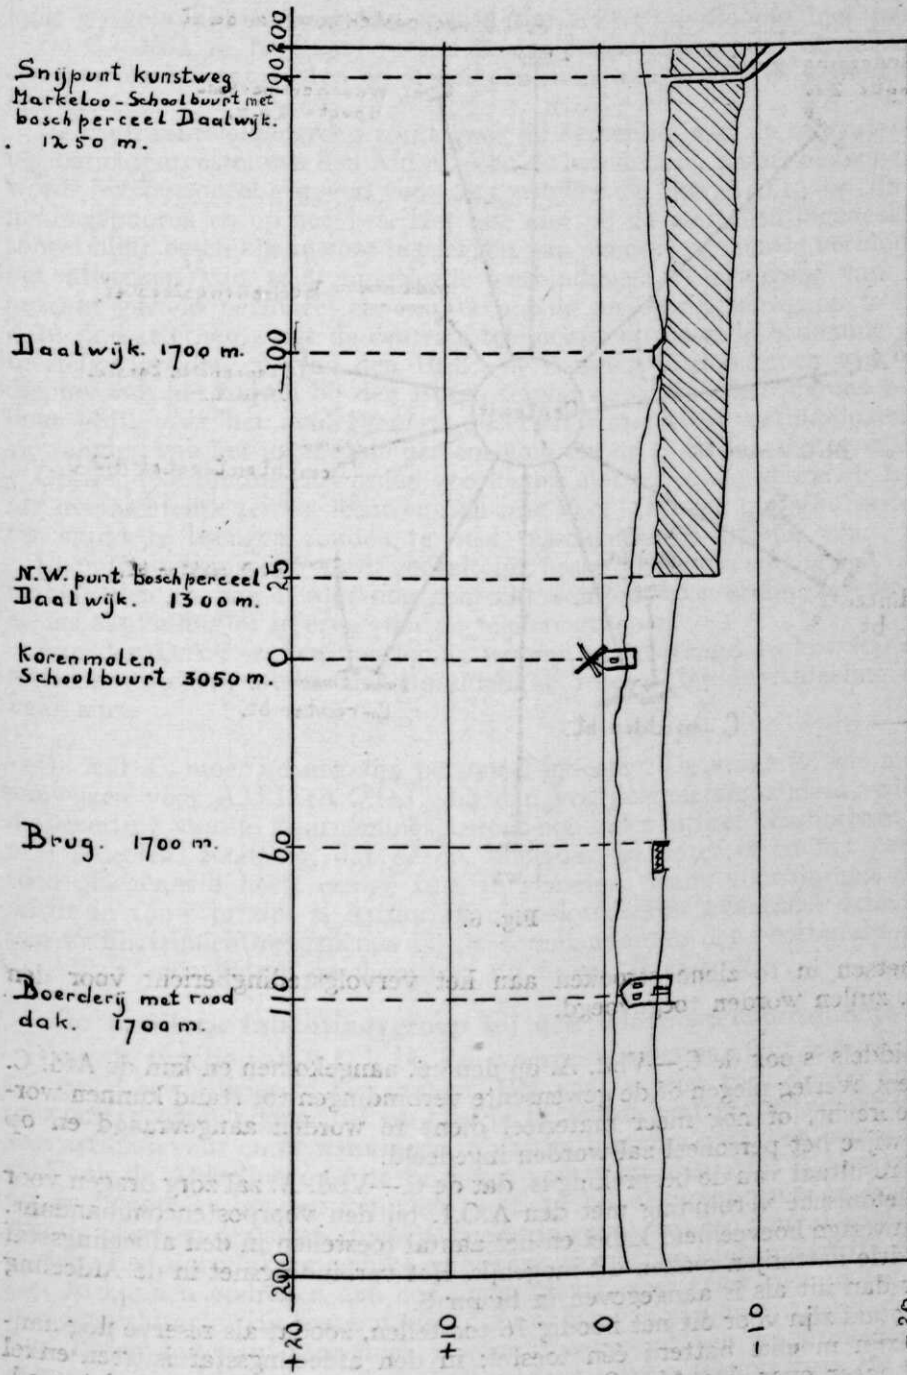 Snijpunt kunstweg
Markeloo-Schoolbuurt met
boschperceel Daalwijk.
1250 m.
Daalwijk. 1700 m.
N.W. punt boschperceel
Daalwijk. 1300 m.
Korenmolen
Schoolbuurt 3050 m.
Brug. 1700 m.
Boerderij met rood
dak. 1700 m.
200
190
100
25
0
60
110
200
+20
+10
0
-10
-20